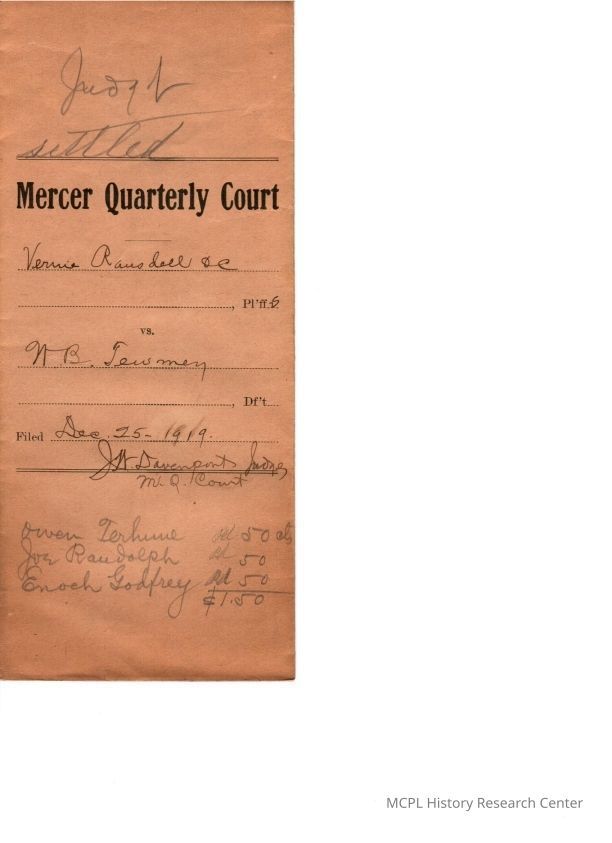 Judgt
settled
Mercer Quarterly Court
Vernie Ransdell &c
, Pl'ff.s
vs.
W B. Tewmey
, Df't.
Filed Dec. 25- 1919.
J W Davenport Judge
M. Q. Court
Owen Terhune pd 50 cts
Joe Randolph pd 50
Enoch Godfrey pd 50
$1.50
MCPL History Research Center